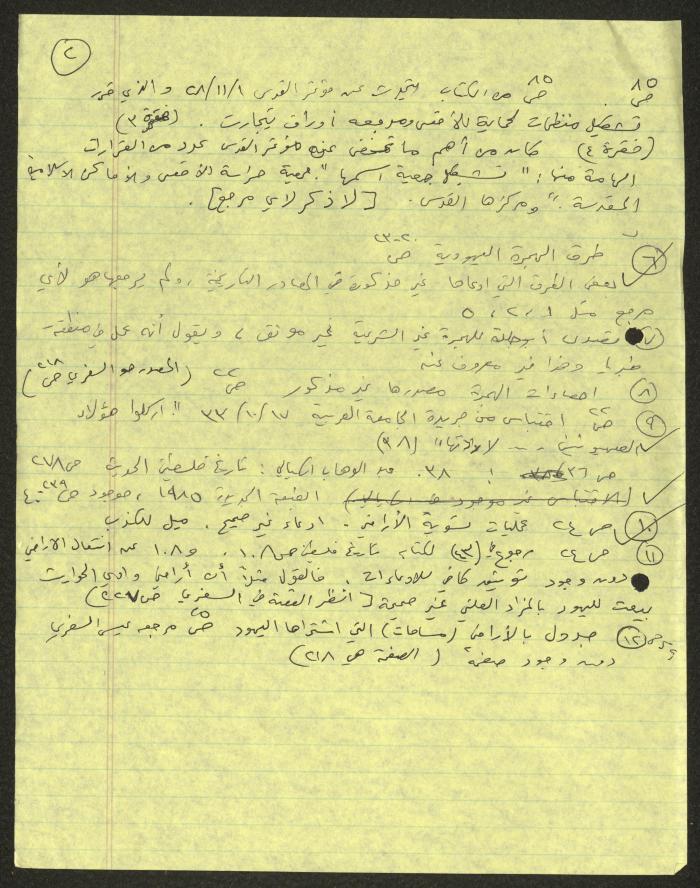 ٢
ص ٨٥ . ص ٨٥ من الكتاب يتحدث عن مؤتمر القدس ٢٨/١١/١ والذي قرر
تشكيل منظمات لحماية للأقصى ومرفعه أوراق يتجارت . (فقرة ٣)
(فقرة ٤) كان من أهم ما تمخض عنه مؤتمر القدس عدد من القرارات
الهامة منها : " تشكيل جمعية اسمها "جمعية حراسة الأقصى والأماكن الاسلامية
المقدسة " ومركزها القدس . [لا ذكر لأي مرجع] .
٦ طرق الهجرة اليهودية ص ٢٠-٢٣
بعض الطرق التي ادعاها غير مذكورة في المصادر التاريخية ، ولم يرجعها هو لأي
مرجع مثل ١ ، ٢ ، ٥
٧ للهجرة غير الشرعية غير موثق ، ويقول أنه عمل في منطقة
طبريا وهذا غير معروف عنه
٨ احصاءات الهجرة مصدرها غير مذكور ص ٢٢ (المصدر هو السفري ص ٢١٨)
٩ ص ٢٢ اقتباس من جريدة الجامعة العربية ٣٣/١٠/١٧ "اركلوا هؤلاء
الصهيونيين ... لاولاتها" (٣٨)
ص ٣٦ ! ٣٨. عبد الوهاب الكيالي : تاريخ فلسطين الحديث ص ٢٧٨
(الاقتباس غير موجود في الكيالي) الطبعة الجديدة ١٩٨٥ ، موجود ص ٢٣٩-٤٠
١٠ ص ٢٤ عمليات تسوية الأراضي . ادعاء غير صحيح . ميل للكذب
١١ ص ٢٤ رجوع في (٢٣) لكتابه تاريخ فلسطين ص ١٠٨ ، و ١٠٨ عن انتقال الأراضي
دون وجود توثيق كافي للادعاءات . فالقول مثلا أن أراضي وادي الحوارث
بيعت لليهود بالمزاد العلني غير صحيحة [انظر القصة في السفري ص ٢٢٧]
١٢ جدول بالأراضي (مساحات) التي اشتراها اليهود ص ٢٥ مرجعه عيسى السفري
دون وجود صفحة ( الصفحة هي ٢١٨)